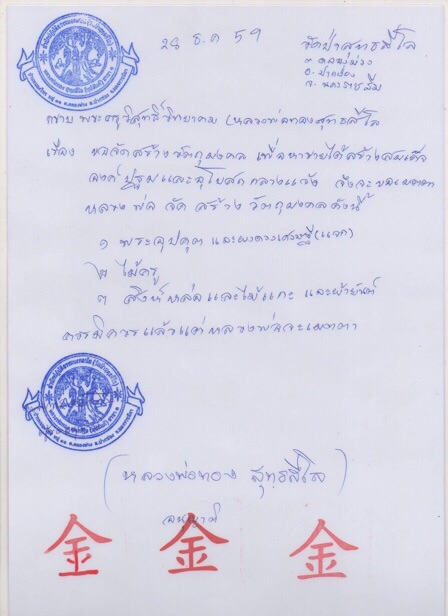 28 ธ.ค 59
วัดป่าสุทธสีโล
ต คลองม่วง
อ. ปากช่อง
จ. นครราชสีมา
กราบ พระครูวิสุทธิ์วิทยาคม (หลวงพ่อทองสุทธสีโล
เรื่อง ขอจัดสร้างวัตถุมงคล เพื่อหารายได้สร้างสมเด็จ
องค์ปฐมและอุโบสถกลางแจ้ง จึงจะขอเมตตา
หลวงพ่อ จัดสร้าง วัตถุมงคลดังนี้
๑ พระอุปคุต และผงดวงเศรษฐี(แจก)
๒ ไม้ครู
๓ สิงห์หล่อและไม้แกะ และผ้ายันต์
ควรมิควรแล้วแต่หลวงพ่อจะเมตตา
(หลวงพ่อทอง สุทธสีโล)
อนุญาติ
金 金 金